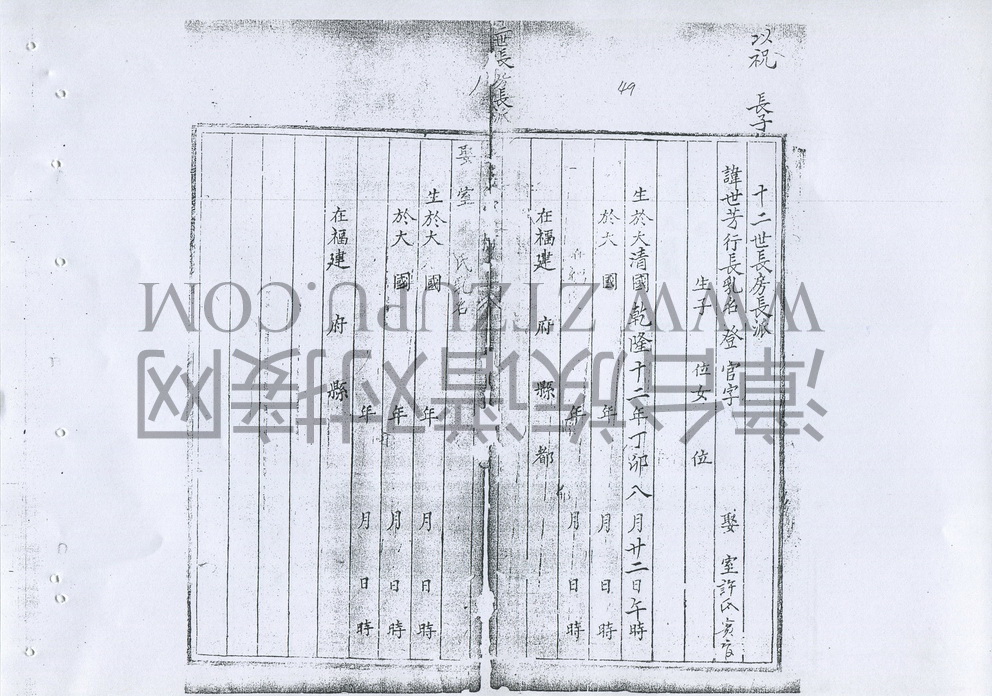 以祝 長子
49
十二世長房長派
諱世芳行長乳名登官字 娶室許氏
生子 位女 位
生於大清國乾隆十二年丁卯八月廿二日午時
於大 國 年 月 日 時
年 月 日 時
在福建 府 縣 都
世長 長派
娶室 氏 名
生於大 國 年 月 日 時
於大 國 年 月 日 時
年 月 日 時
在福建 府 縣
WWW.ZTZUPU.COM
漳台族谱对接网